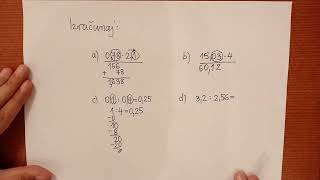 Izračunaj:
a) 0,78 · 2,1
156
+ 78
1638
b) 15,03 · 4
60,12
c) 0,1 : 0,4=0,25
1:4=0,25
-0
10
-8
20
-20
0
d) 3,2 : 2,56=